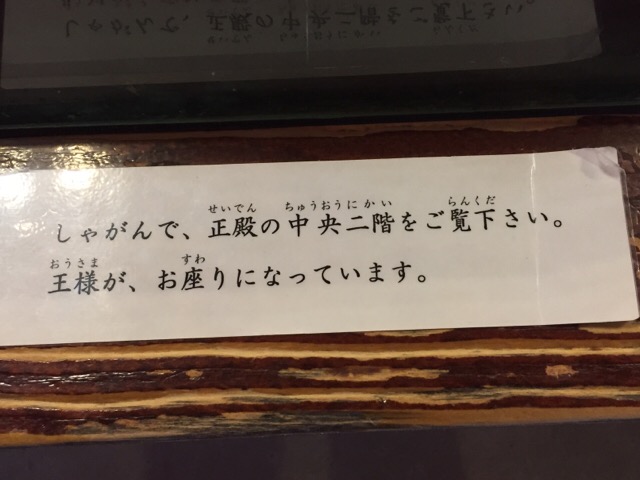 せいでん ちゅうおうにかい らんくだ
しゃがんで、正殿の中央二階をご覧下さい。
おうさま すわ
王様が、お座りになっています。